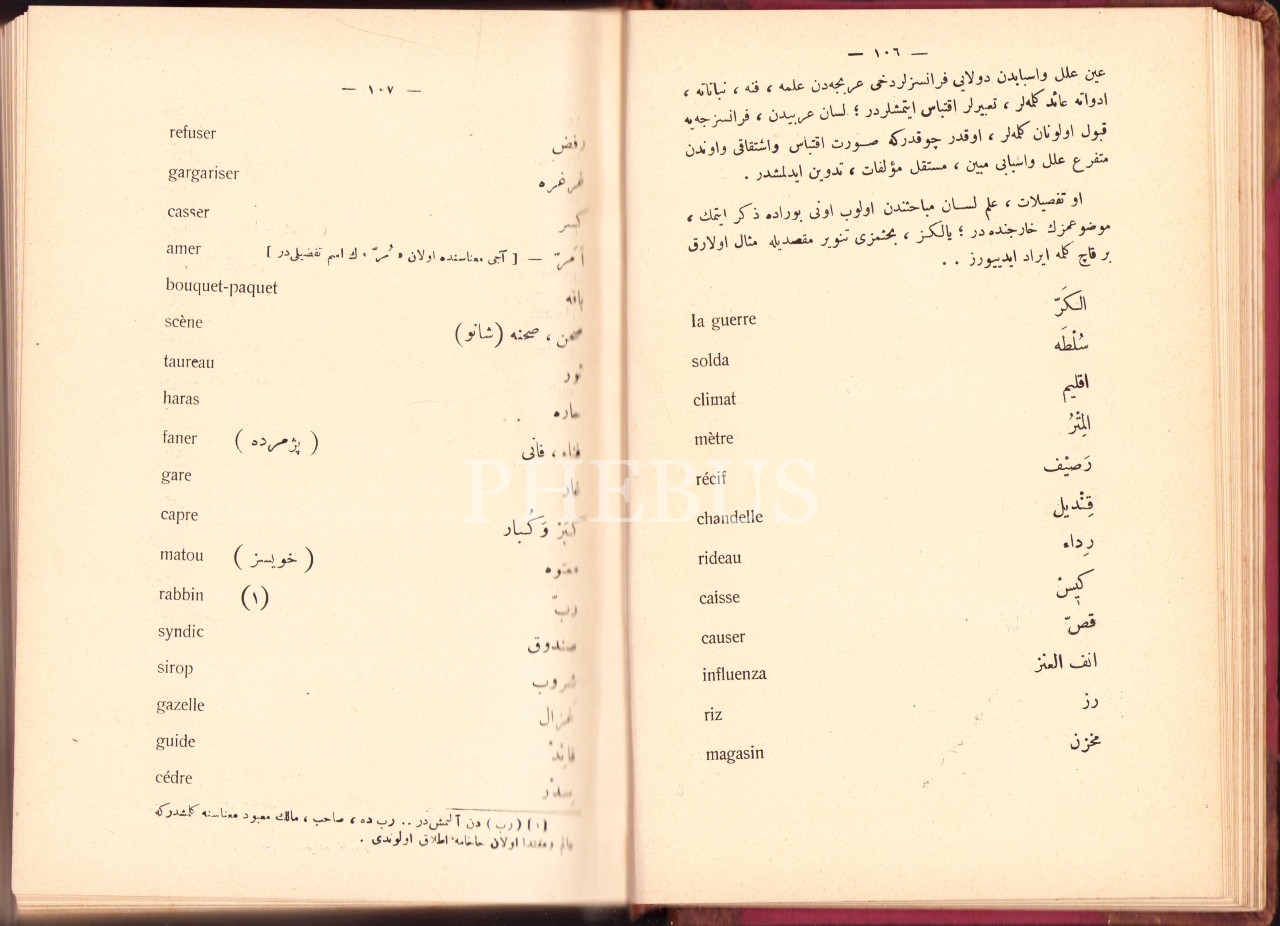 — ١٠٦ —
عين علل واسبابدن دولايى فرانسزلردخى عربجه‌دن علمه ، فنه ، نباتاته ،
ادواته عائد كله‌لر ، تعبيرلر اقتباس ايتمشلردر ؛ لسان عربيدن ، فرانسزجه‌يه
قبول اولونان كله‌لر ، اوقدر چوقدركه صورت اقتباس واشتقاقى واوندن
متفرع علل واسبابى مبين ، مستقل مؤلفات ، تدوين ايدلمشدر .
او تفصيلات ، علم لسان مباحثندن اولوب اونى بوراده ذكر ايتمك ،
موضوعمزك خارجنده در ؛ يالكز ، بحثمزى تنوير مقصديله مثال اولارق
بر قاچ كله ايراد ايدييورز . .
الكَرّ la guerre
سُلْطَه solda
اقليم climat
المِتْرُ mètre
رَصيْف récif
قِنْديل chandelle
رِداء rideau
كيٖسْ caisse
قصّ causer
انف العنز influenza
رز riz
مخزن magasin
— ١٠٧ —
رفض refuser
غرغره gargariser
كسر casser
اَمَرّ — [ آجى معناسنده اولان « مُرّ » ك اسم تفضيلى‌در ] amer
باقه bouquet-paquet
صحن ، صحنه (شانو) scène
ثور taureau
حاره haras
فناء ، فانى ( پژمرده ) faner
غار gare
كَبَرْ وَ كُبار capre
معتوه ( خويسز ) matou
ربّ (١) rabbin
صندوق syndic
شروب sirop
غزال gazelle
قائدْ guide
سِدْر cédre
[١] (رب) دن آلنمش‌در . . رب ده ، صاحب ، مالك معبود معناسنه كلمشدركه
عالم ومقتدا اولان خاخامه اطلاق اولوندى .
PHEBUS